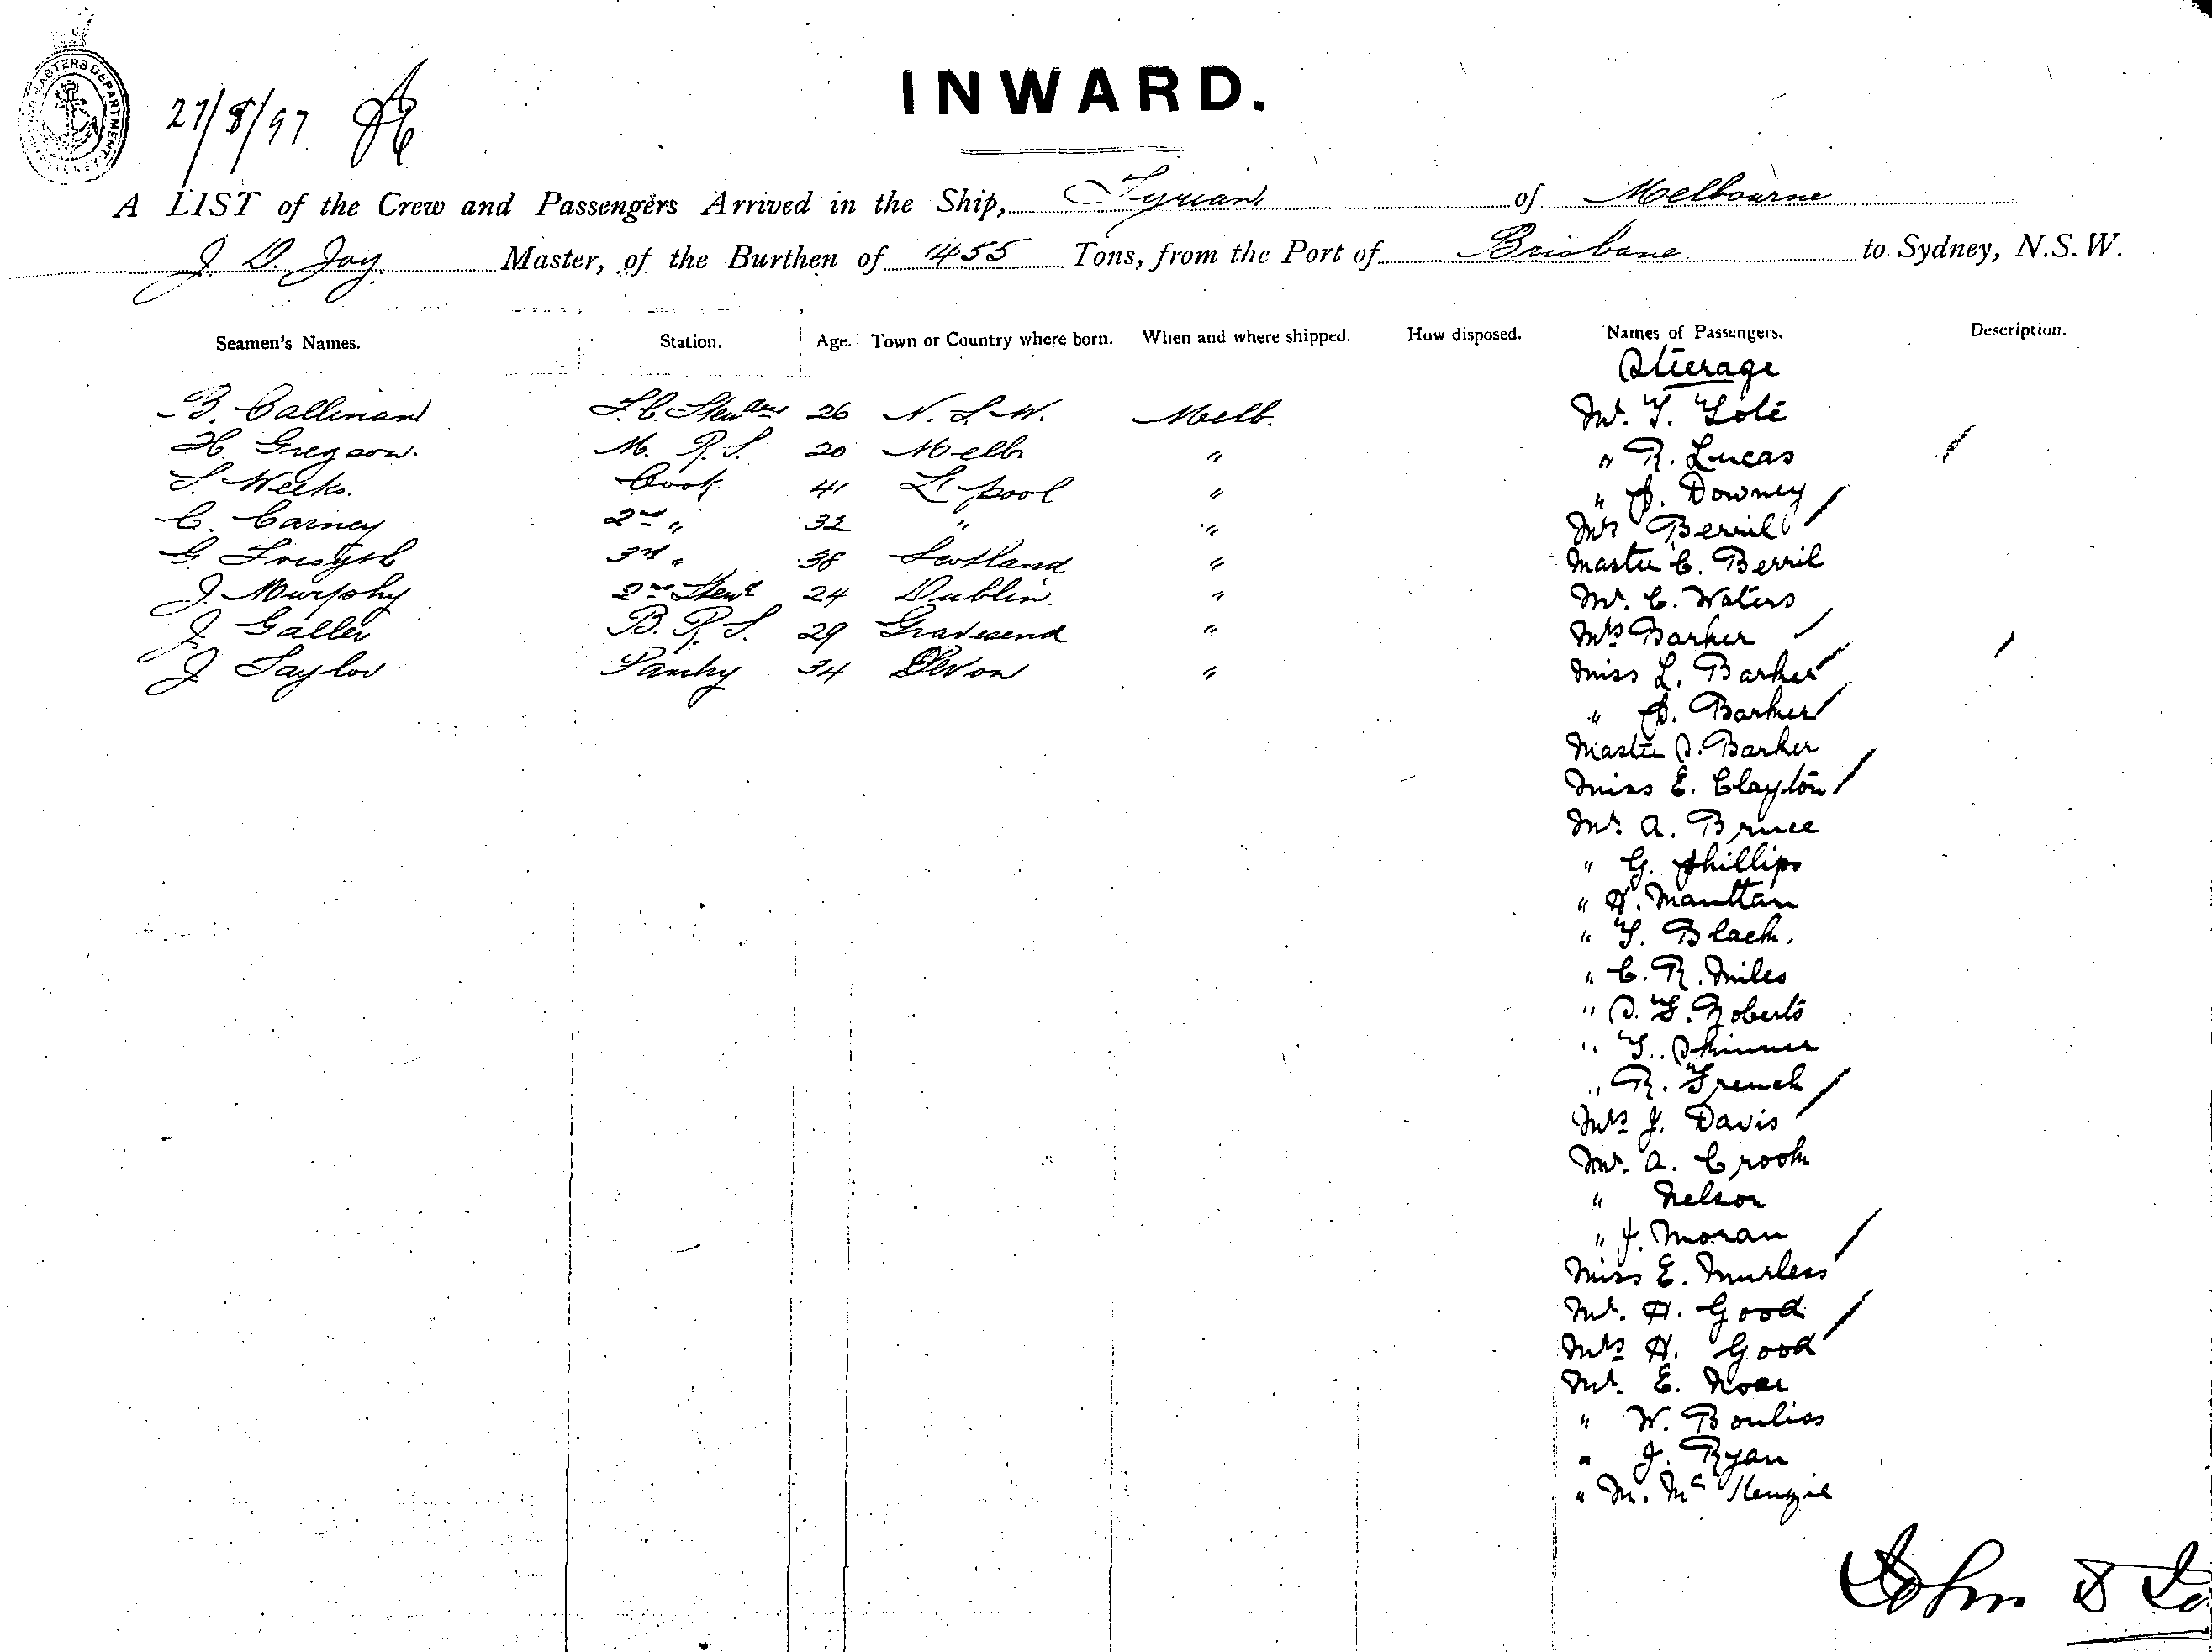 MASTERS DEPARTMENT
27/8/97
INWARD.
A LIST of the Crew and Passengers Arrived in the Ship, Tyrian of Melbourne
J. D. Joy. Master, of the Burthen of 1455 Tons, from the Port of Brisbane to Sydney, N.S.W.
Seamen's Names. Station. Age. Town or Country where born. When and where shipped. How disposed. Names of Passengers. Description.
Steerage
B. Callinan F.C. Stewdess 26 N.S.W. Melb. Mr. T. Lole
H. Gregson. M. R. S. 20 Melb " " R. Lucas
S. Weeks. Cook 41 L'pool " " P. Downey
C. Carney 2nd " 32 " " Mrs Berril
G. Forsyth 3rd " 38 Scotland " Master C. Berril
J. Murphy 2nd Stewd 24 Dublin. " Mr. C. Waters
J. Galler B. R. S. 29 Gravesend " Mrs Barker
J Taylor Pantry 34 Devon " Miss L. Barker
" P. Barker
Master S. Barker
Miss E. Clayton
Mr. A. Bruce
" G. Phillips
" H. Manttan
" T. Black.
" C. R. Miles
" S. F. Roberts
" T. Skinner
" R. French
Mrs J. Davis
Mr. A. Crook
" Nelson
" J. Moran
Miss E. Murless
Mr. H. Good
Mrs H. Good
Mr. E. Noar
" W. Bouliss
" J. Ryan
" M. McKenzie
John D